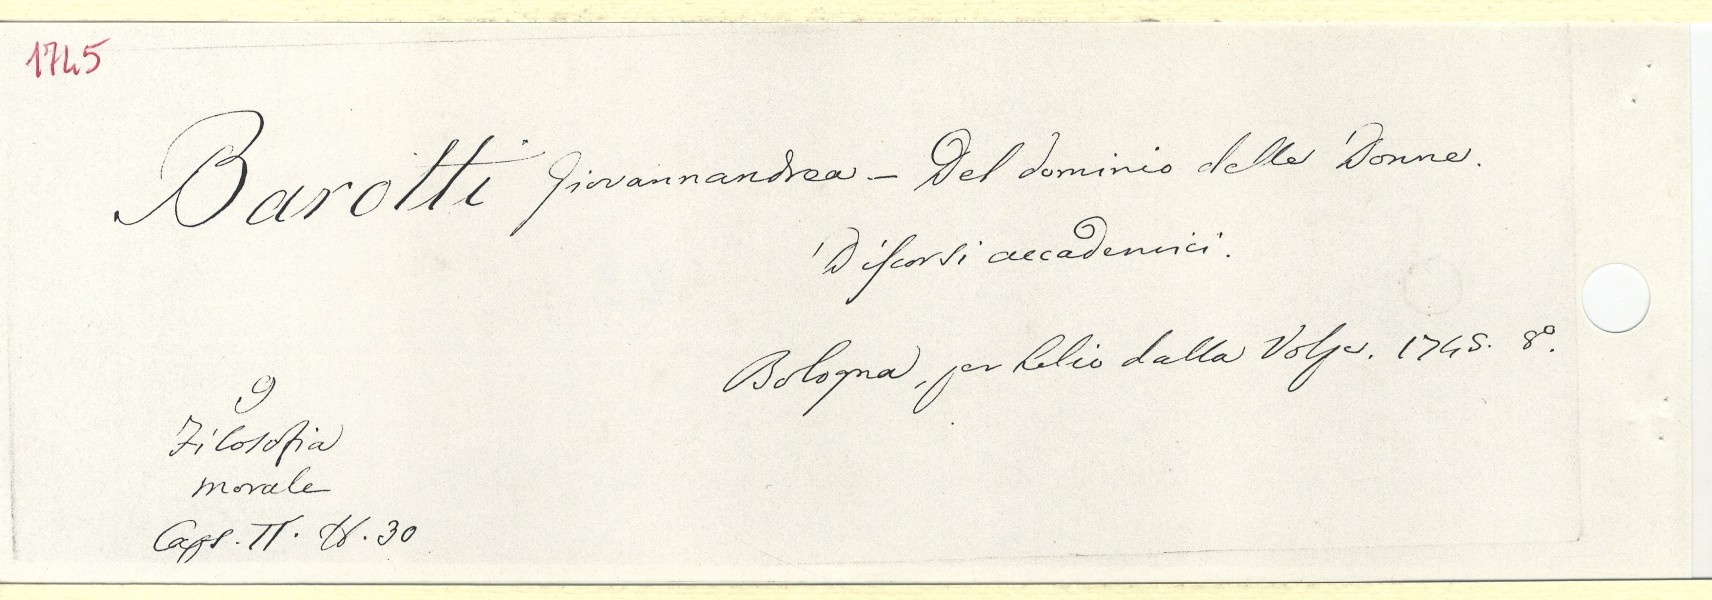 1745
Barotti Giovannandrea – Del dominio delle Donne.
Discorsi accademici.
Bologna, per Lelio dalla Volpe. 1745. 8º.
9
Filosofia
morale
Caps. II. N. 30